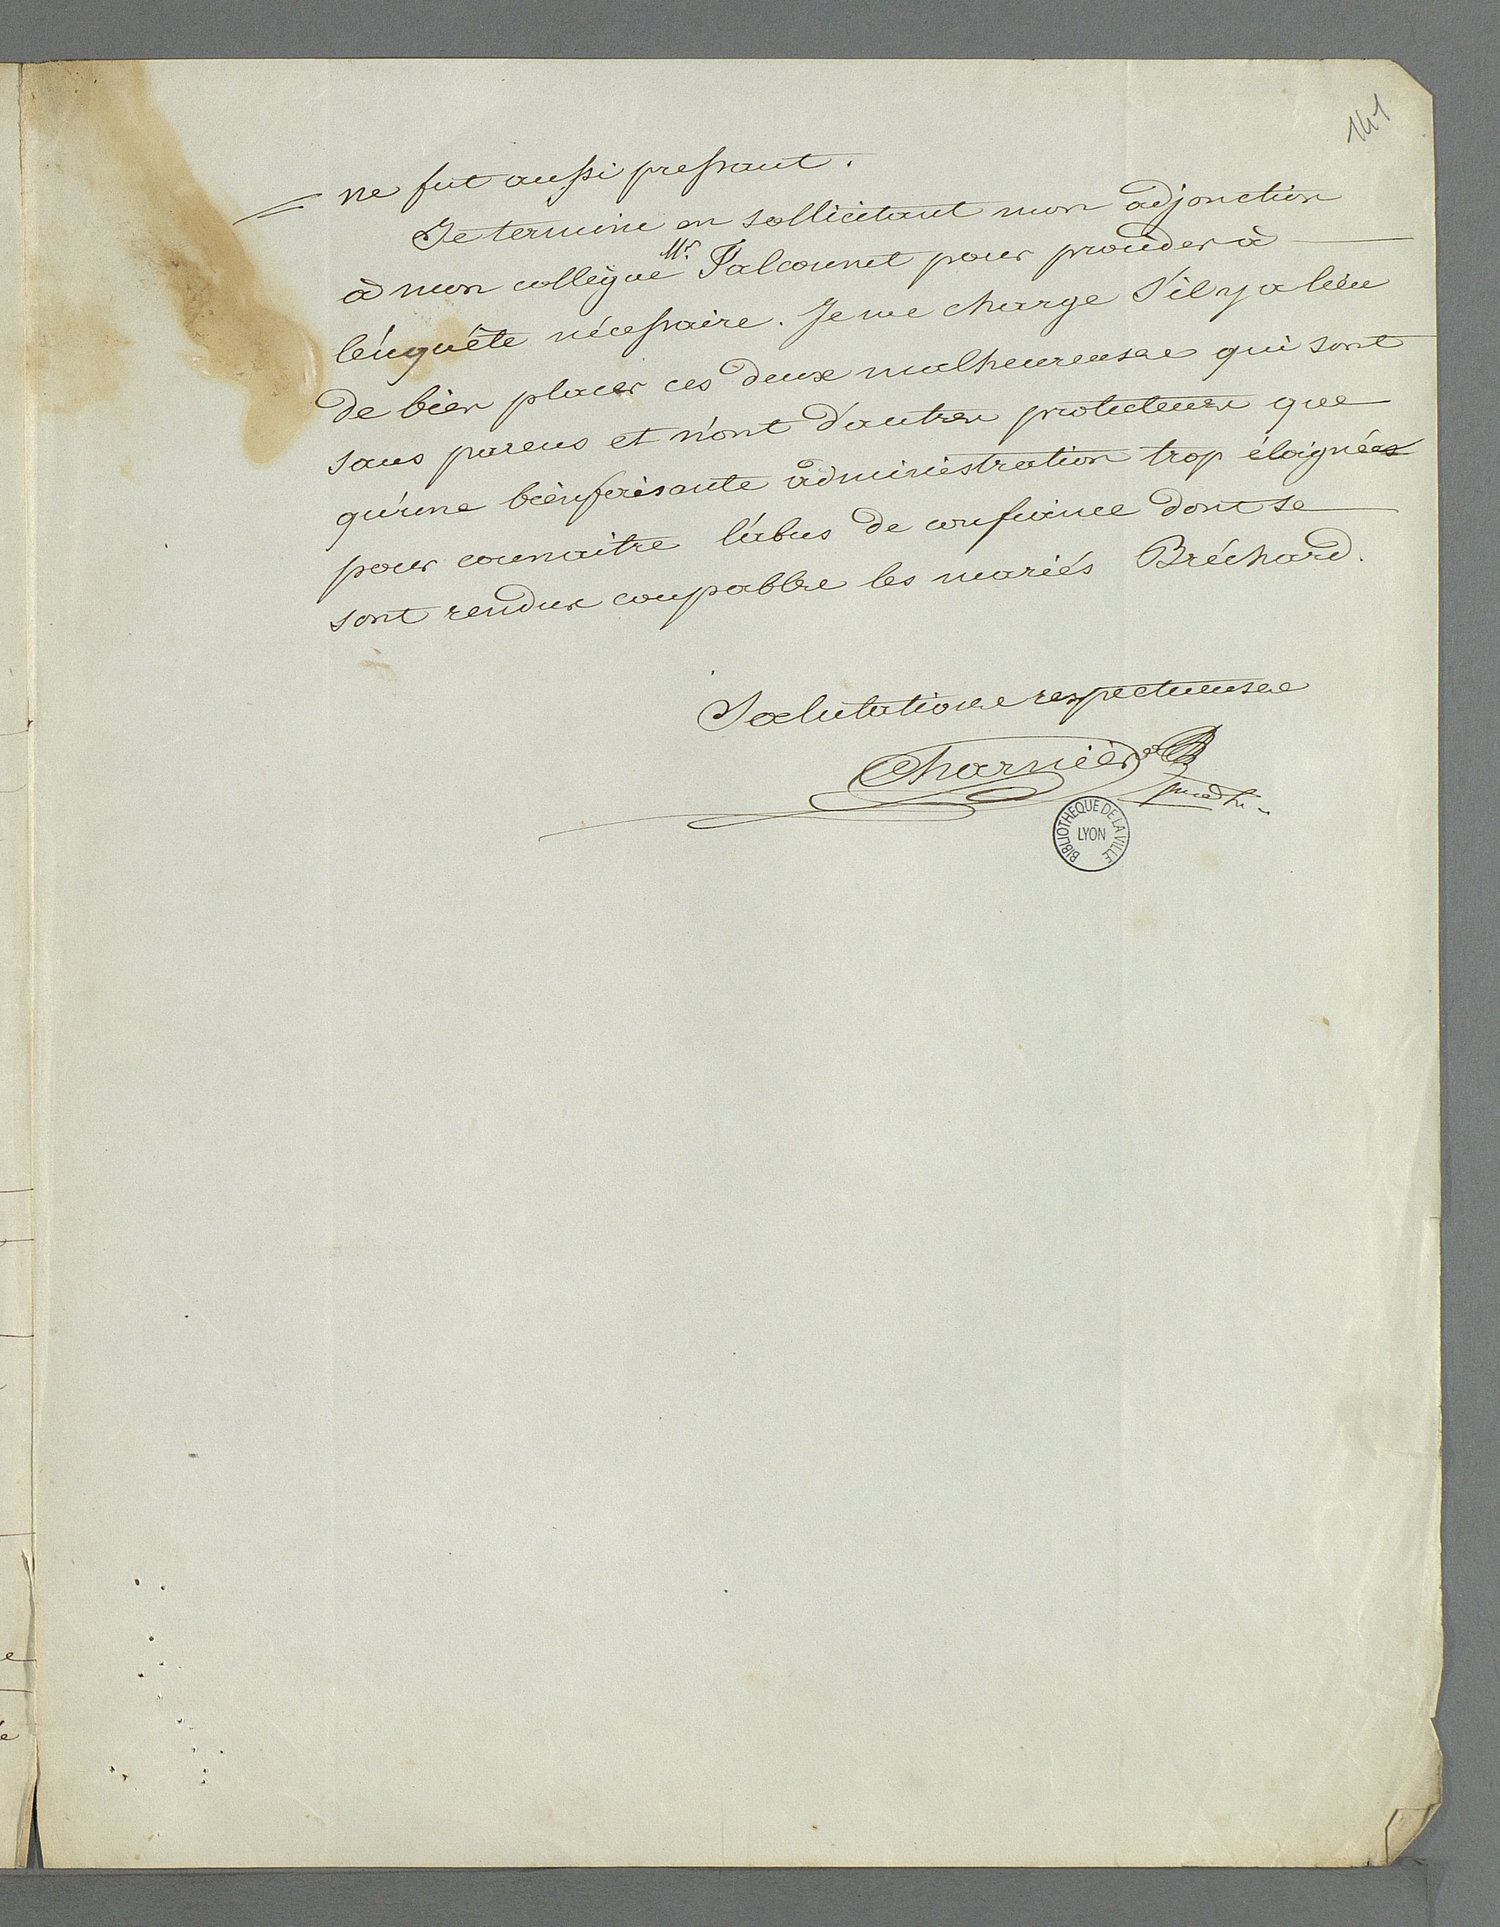 141
ne fut aussi pressant.
Je termine en sollicitant mon adjonction
à mon collègue Mr. Falconnet pour procéder à
l'enquête nécessaire. Je me charge s'il y a lieu
de bien placer ces deux malheureuses qui sont
sans parens et n'ont d'autres protecteurs que
qu'une bienfaisante administration trop éloignée
pour connaitre l'abus de confiance dont se
sont rendus coupables les mariés Bréchard.
Salutations respectueuses
Charnier
BIBLIOTHEQUE DE LA VILLE
LYON